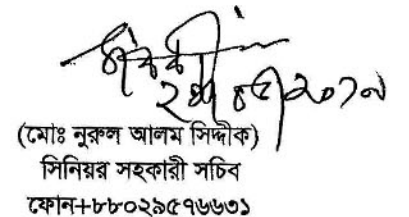 (মোঃ নুরুল আলম সিদ্দীক)
সিনিয়র সহকারী সচিব
ফোন+৮৮০২৯৫৭৬৬৩১